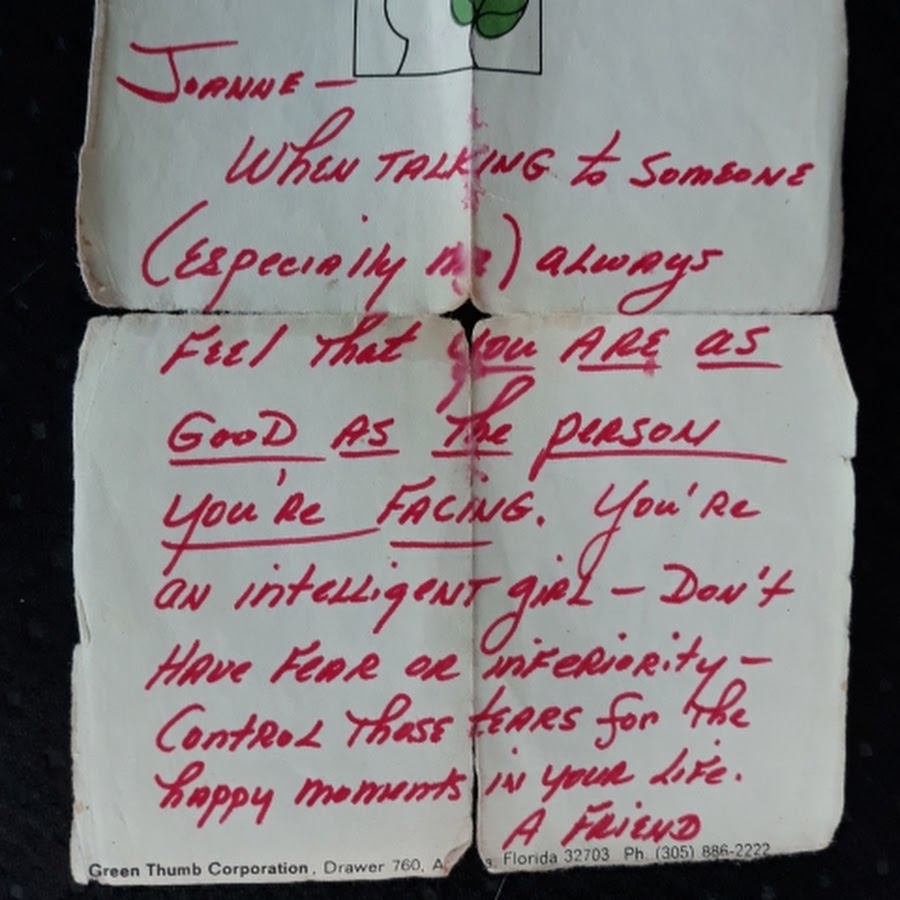 Joanne —
When talking to someone
(Especially me) always
Feel that you are as
good as the person
you're facing. You're
an intelligent girl — Don't
Have fear or inferiority —
Control those tears for the
happy moments in your life.
A Friend
Green Thumb Corporation, Drawer 760, A a, Florida 32703 Ph. (305) 886-2222